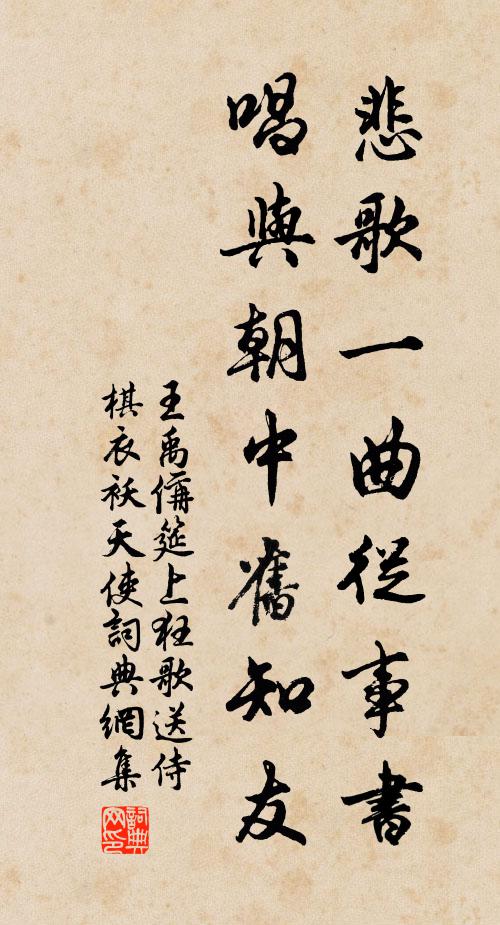 悲歌一曲從事書
唱與朝中舊知友
王禹偁筵上狂歌送侍
棋衣袄天使詞典網集
詞典
网印